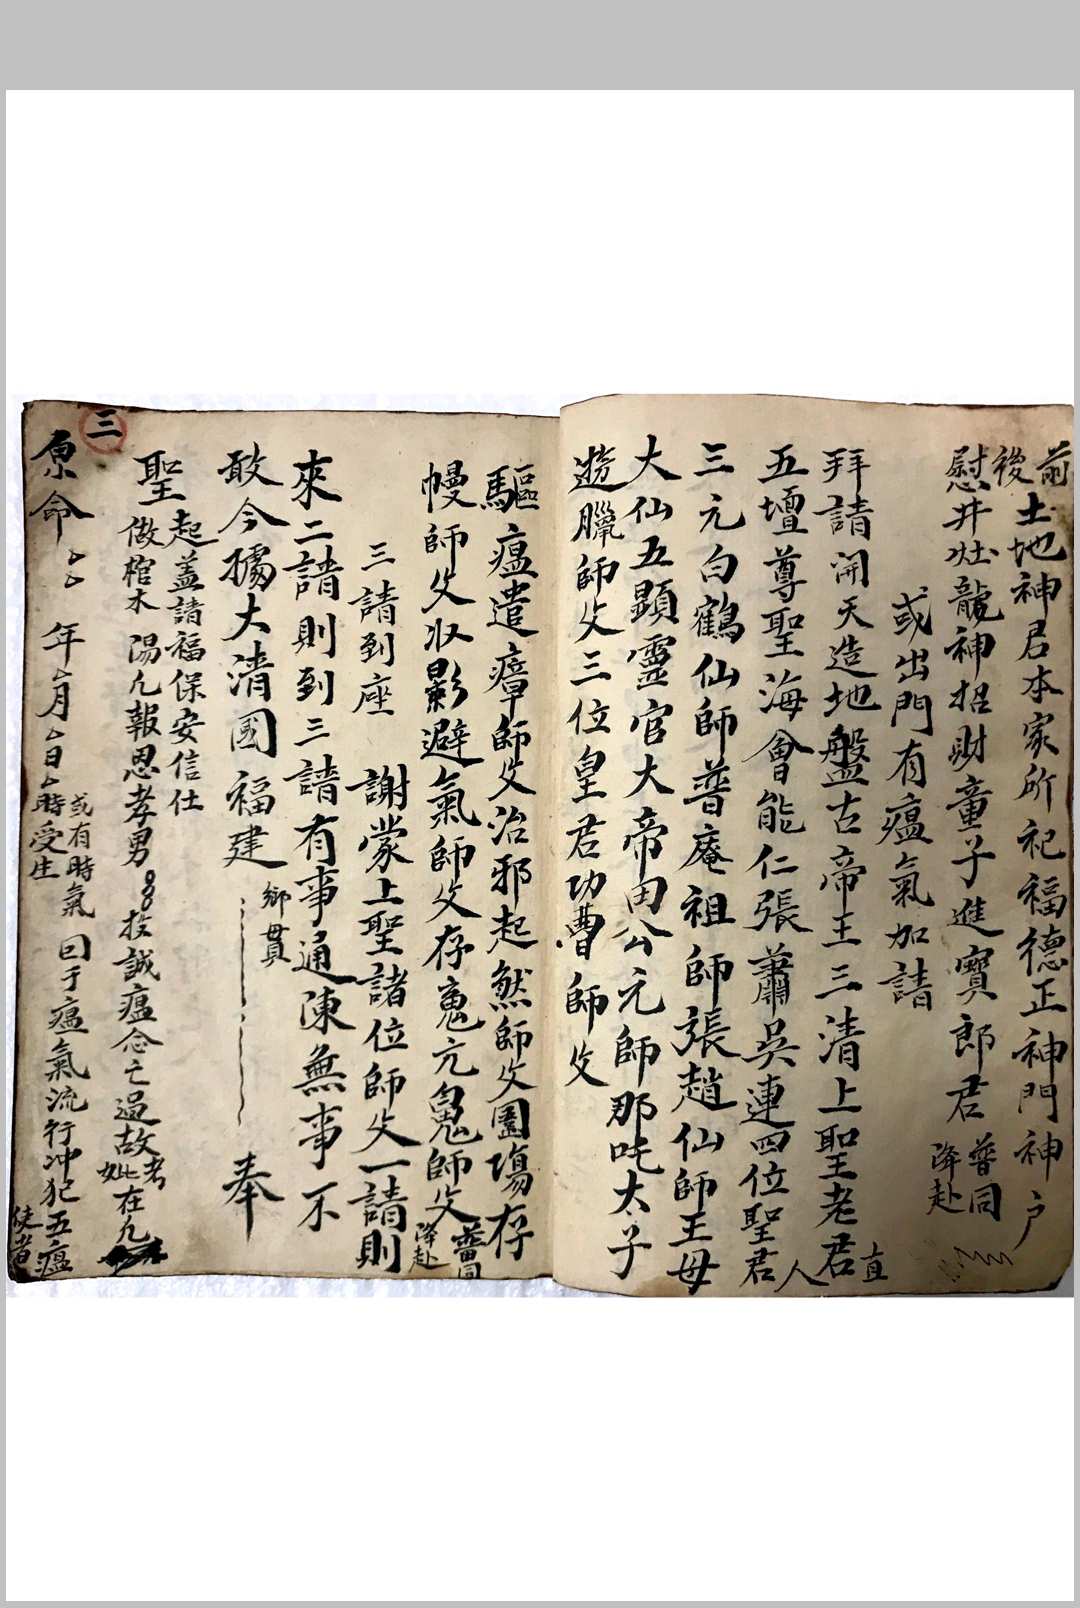 前後土地神君本家所祀福德正神門神户
慰井灶龍神招財童子進寶郎君普同降赴
或出門有瘟氣加請
拜請開天造地盤古帝王三清上聖老君直
五壇尊聖海會能仁張蕭吳連四位聖君人
三元白鶴仙師普庵祖師張趙仙師王母
大仙五顯靈官大帝田公元師那吒太子
遊臘師父三位皇君功曹師父
驅瘟遣瘴師父治邪起煞師父園塲存
幔師父收影避氣師父存䰟元䰟師父普同降赴
三請到座 謝蒙上聖諸位師父一請則
來二請則到三請有事通陳無事不
敢今據大清國福建鄉貫 奉
聖起蓋請福保安信仕
做棺木 湯凢報恩孝男 投誠瘟念亡過故考妣在凢
三
原命 年 月 日 時受生或有時氣 曰于瘟氣流行冲犯五瘟使者